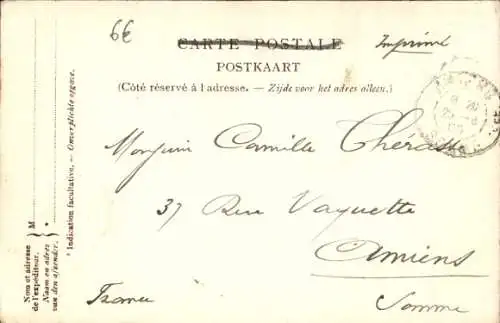 6€
CARTE POSTALE
Imprimé
POSTKAART
(Côté réservé à l'adresse. — Zijde voor het adres alleen.)
Monsieur Camille
37 Rue Vaquette
Amiens
France
Somme
* Indication facultative. — Onverplichte opgave.
M
Nom et adresse
de l'expéditeur.
Naam en adres
van den afzender.